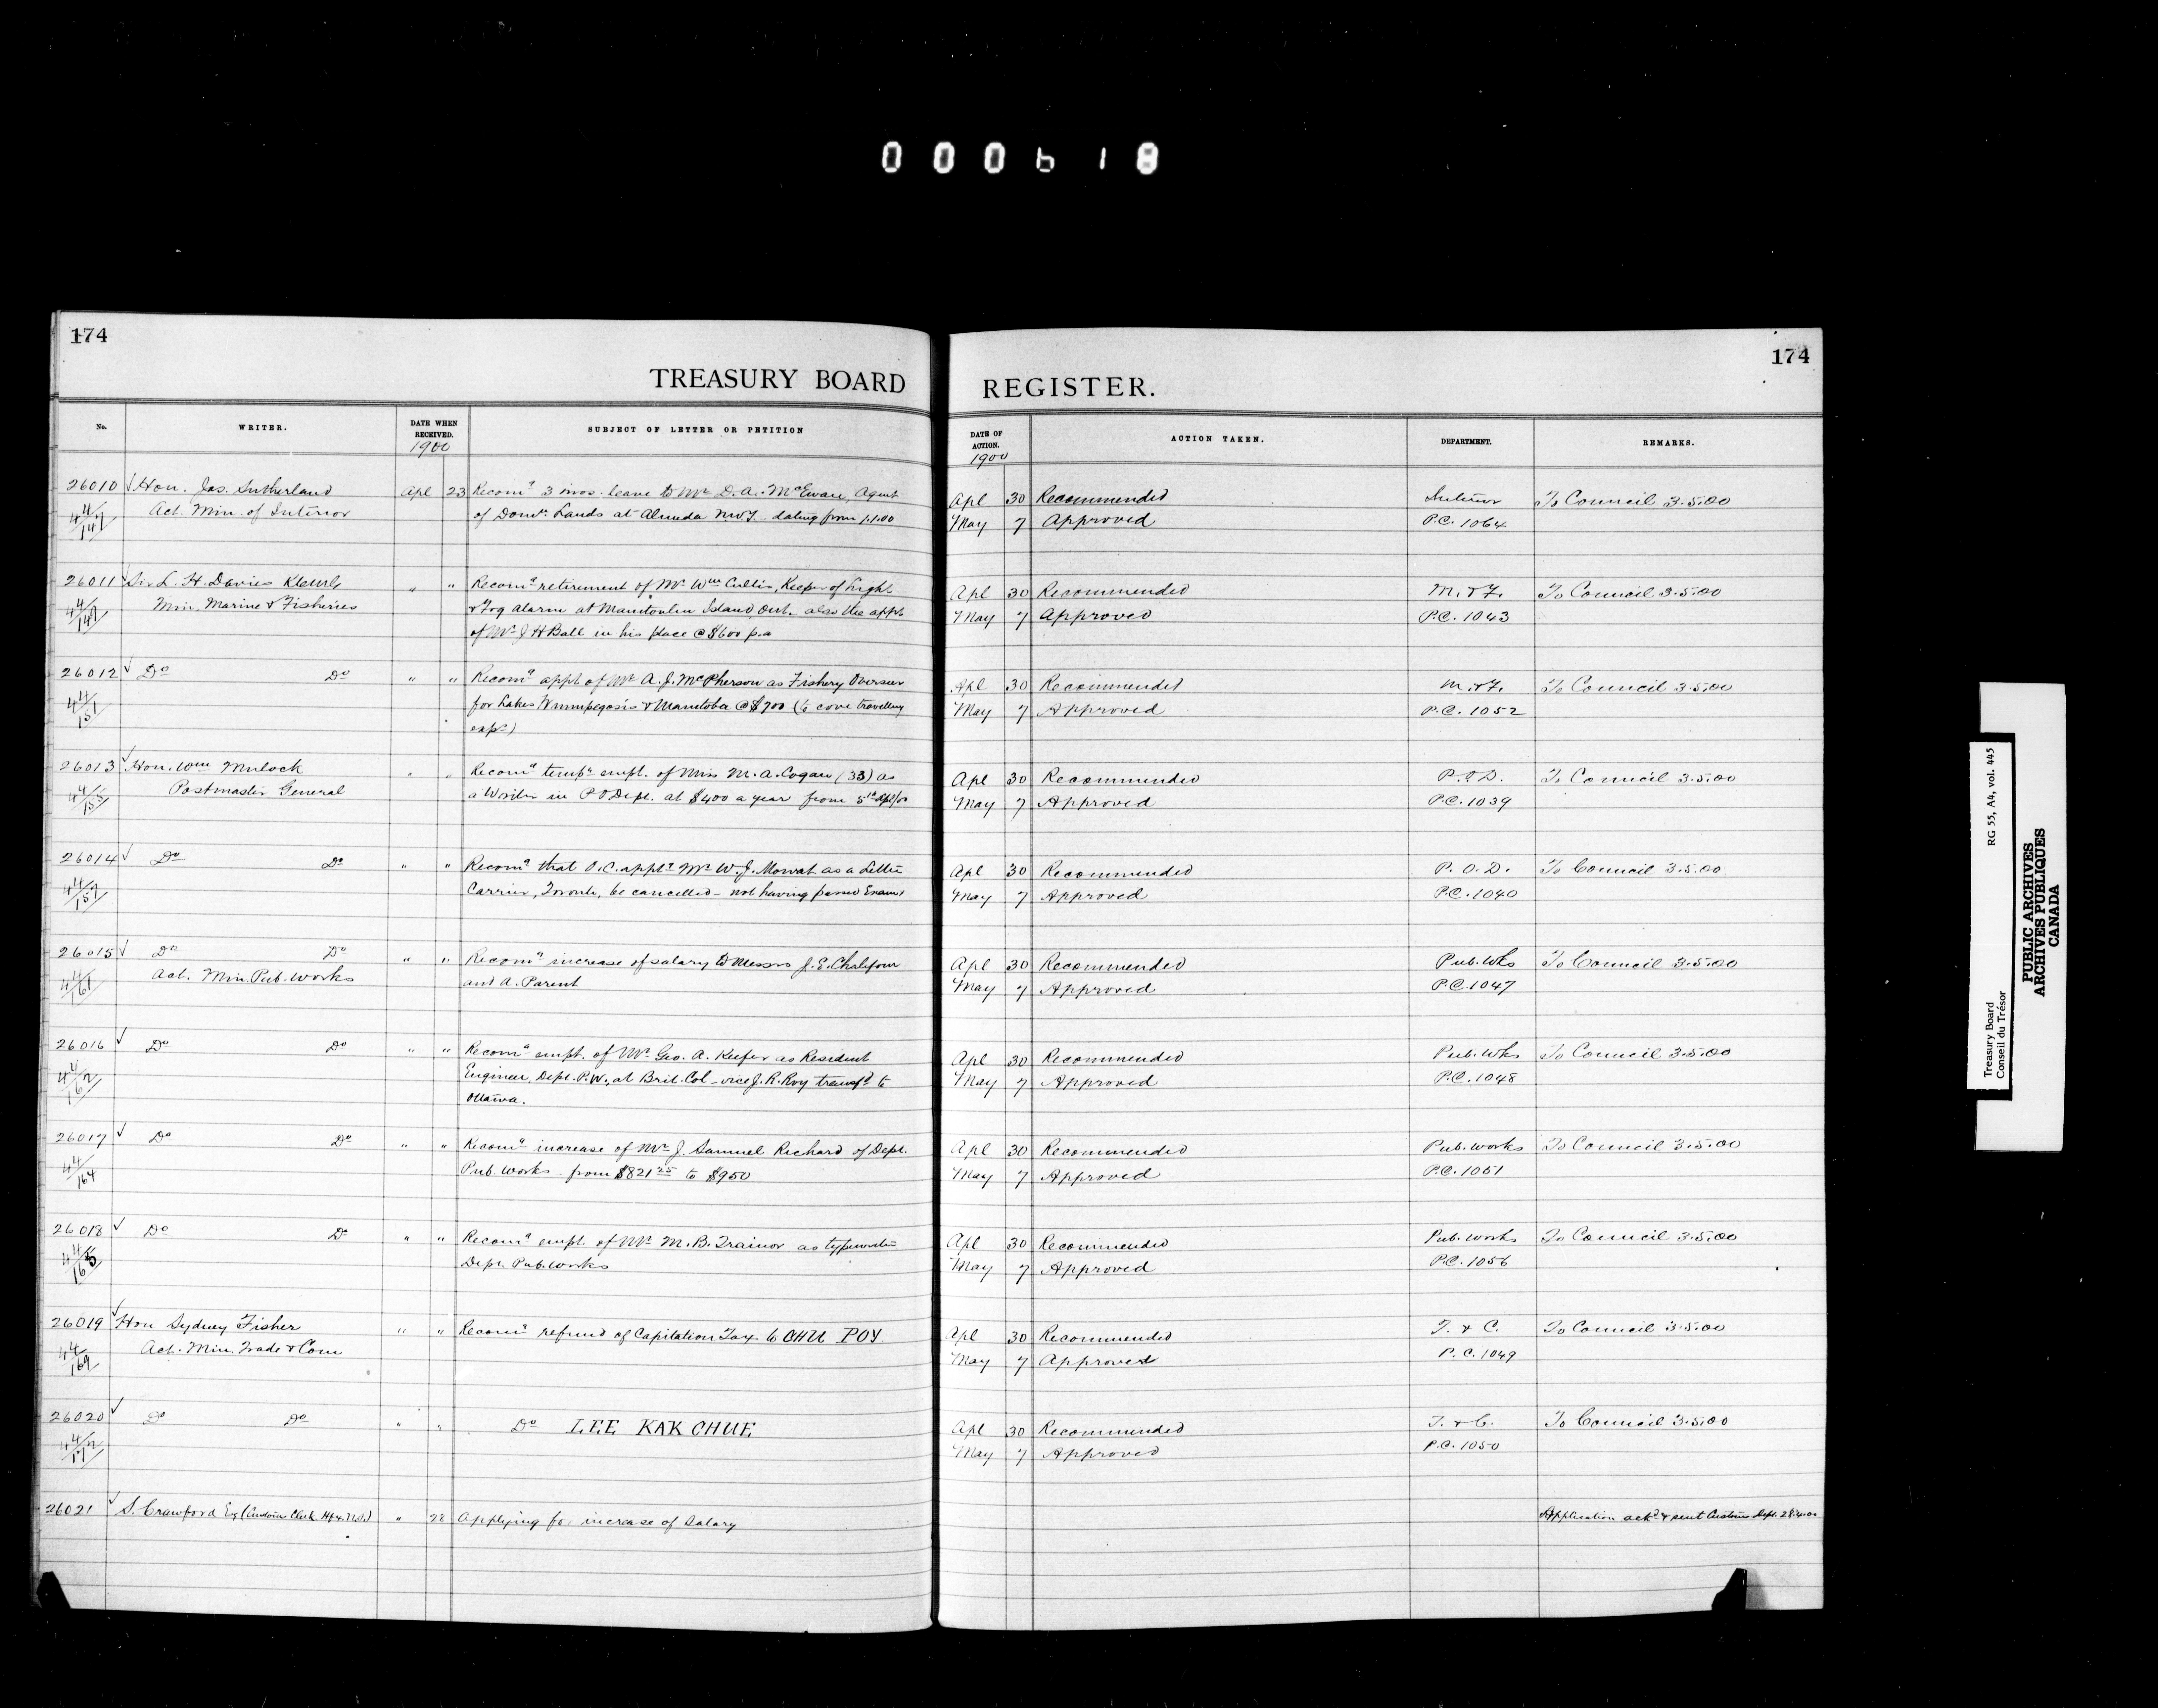 000618
174
TREASURY BOARD
No.
WRITER.
DATE WHEN RECEIVED.
1900
SUBJECT OF LETTER OR PETITION
26010 Hon. Jas. Sutherland Apl 23 Recomg 3 mos. leave to Mr D. A. McEwan, Agent
44/147 Act. Min. of Interior of Domn Lands at Alameda NWT. dating from 1.1.00
26011 Sir L. H. Davies KCMG " " Recomg retirement of Mr Wm Cullis, Keeper of Light
44/149 Min. Marine & Fisheries & Fog alarm at Manitoulin Island, Ont. also the appt
of Mr J H Ball in his place @ $600 p.a
26012 Do Do " " Recomg appt of Mr A. J. McPherson as Fishery Overseer
44/151 for Lakes Winnipegosis & Manitoba @ $700 (to cover travelling
exps)
26013 Hon. Wm Mulock " " Recomg tempy empt. of Miss M. A. Cogan (33) as
44/155 Postmaster General a Writer in P O Dept. at $400 a year from 5th Apl/00
26014 Do Do " " Recomg that O.C. apptg Mr W. J. Mowat as a Letter
44/157 Carrier, Toronto, be cancelled - not having passed Exams
26015 Do Do " " Recomg increase of salary to Messrs J. E. Chalifour
44/161 Act. Min. Pub. Works and A. Parent
26016 Do Do " " Recomg empt. of Mr Geo. A. Keefer as Resident
44/162 Engineer, Dept. P.W., at Brit. Col - vice J. R. Roy transfd to
Ottawa.
26017 Do Do " " Recomg increase of Mr J. Samuel Richard of Dept.
44/164 Pub. Works - from $821 25 to $950
26018 Do Do " " Recomg empt. of Mr M. B. Trainor as typewriter
44/165 Dept. Pub. Works
26019 Hon Sydney Fisher " " Recomg refund of Capitation Tax to CHU POY
44/169 Act. Min. Trade & Com
26020 Do Do " " Do LEE KAK CHUE
44/172
26021 S. Crawford Esq (Customs Clerk Hfx. N.S.) " 28 Applying for increase of Salary
174
REGISTER.
DATE OF ACTION.
1900
ACTION TAKEN.
DEPARTMENT.
REMARKS.
Apl 30 Recommended Interior To Council 3.5.00
May 7 Approved P.C. 1064
Apl 30 Recommended M. & F. To Council 3.5.00
May 7 Approved P.C. 1043
Apl 30 Recommended M. & F. To Council 3.5.00
May 7 Approved P.C. 1052
Apl 30 Recommended P.O.D. To Council 3.5.00
May 7 Approved P.C. 1039
Apl 30 Recommended P. O. D. To Council 3.5.00
May 7 Approved P.C. 1040
Apl 30 Recommended Pub. Wks To Council 3.5.00
May 7 Approved P.C. 1047
Apl 30 Recommended Pub. Wks To Council 3.5.00
May 7 Approved P.C. 1048
Apl 30 Recommended Pub. Works To Council 3.5.00
May 7 Approved P.C. 1051
Apl 30 Recommended Pub. Works To Council 3.5.00
May 7 Approved P.C. 1056
Apl 30 Recommended T. & C. To Council 3.5.00
May 7 Approved P.C. 1049
Apl 30 Recommended T. & C. To Council 3.5.00
May 7 Approved P.C. 1050
Application ackd & sent Customs Dept. 28.4.00
Treasury Board RG 55, A4, vol. 445
Conseil du Trésor
PUBLIC ARCHIVES
ARCHIVES PUBLIQUES
CANADA